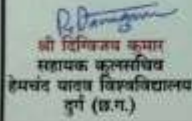 श्री दिग्विजय कुमार
सहायक कुलसचिव
हेमचंद यादव विश्वविद्यालय
दुर्ग (छ.ग.)